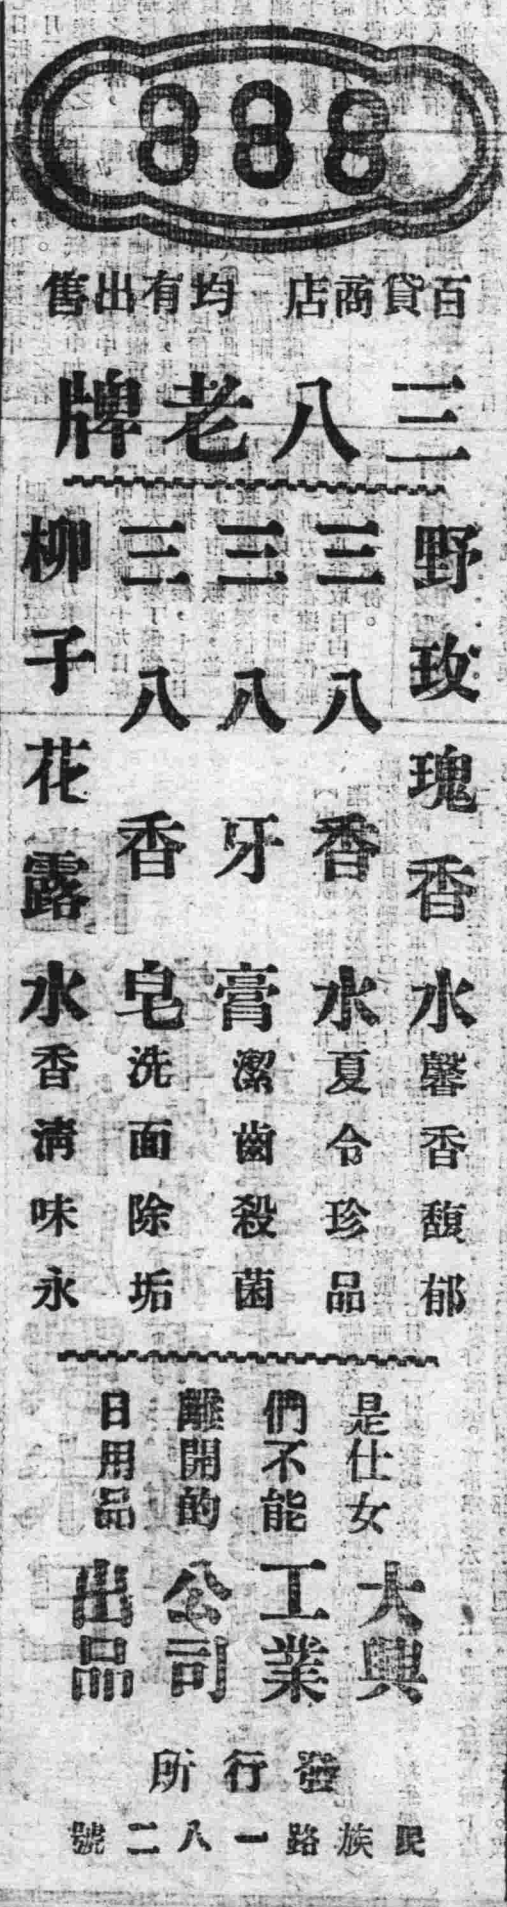 888
百貨商店 均有出售
三八老牌
野玫瑰香水 馨香馥郁
三八香水 夏令珍品
三八牙膏 潔齒殺菌
三八香皂 洗面除垢
柳子花露水 香清味永
是仕女
們不能
離開的
日用品
大興
工業
公司
出品
發行所
民族路一八二號